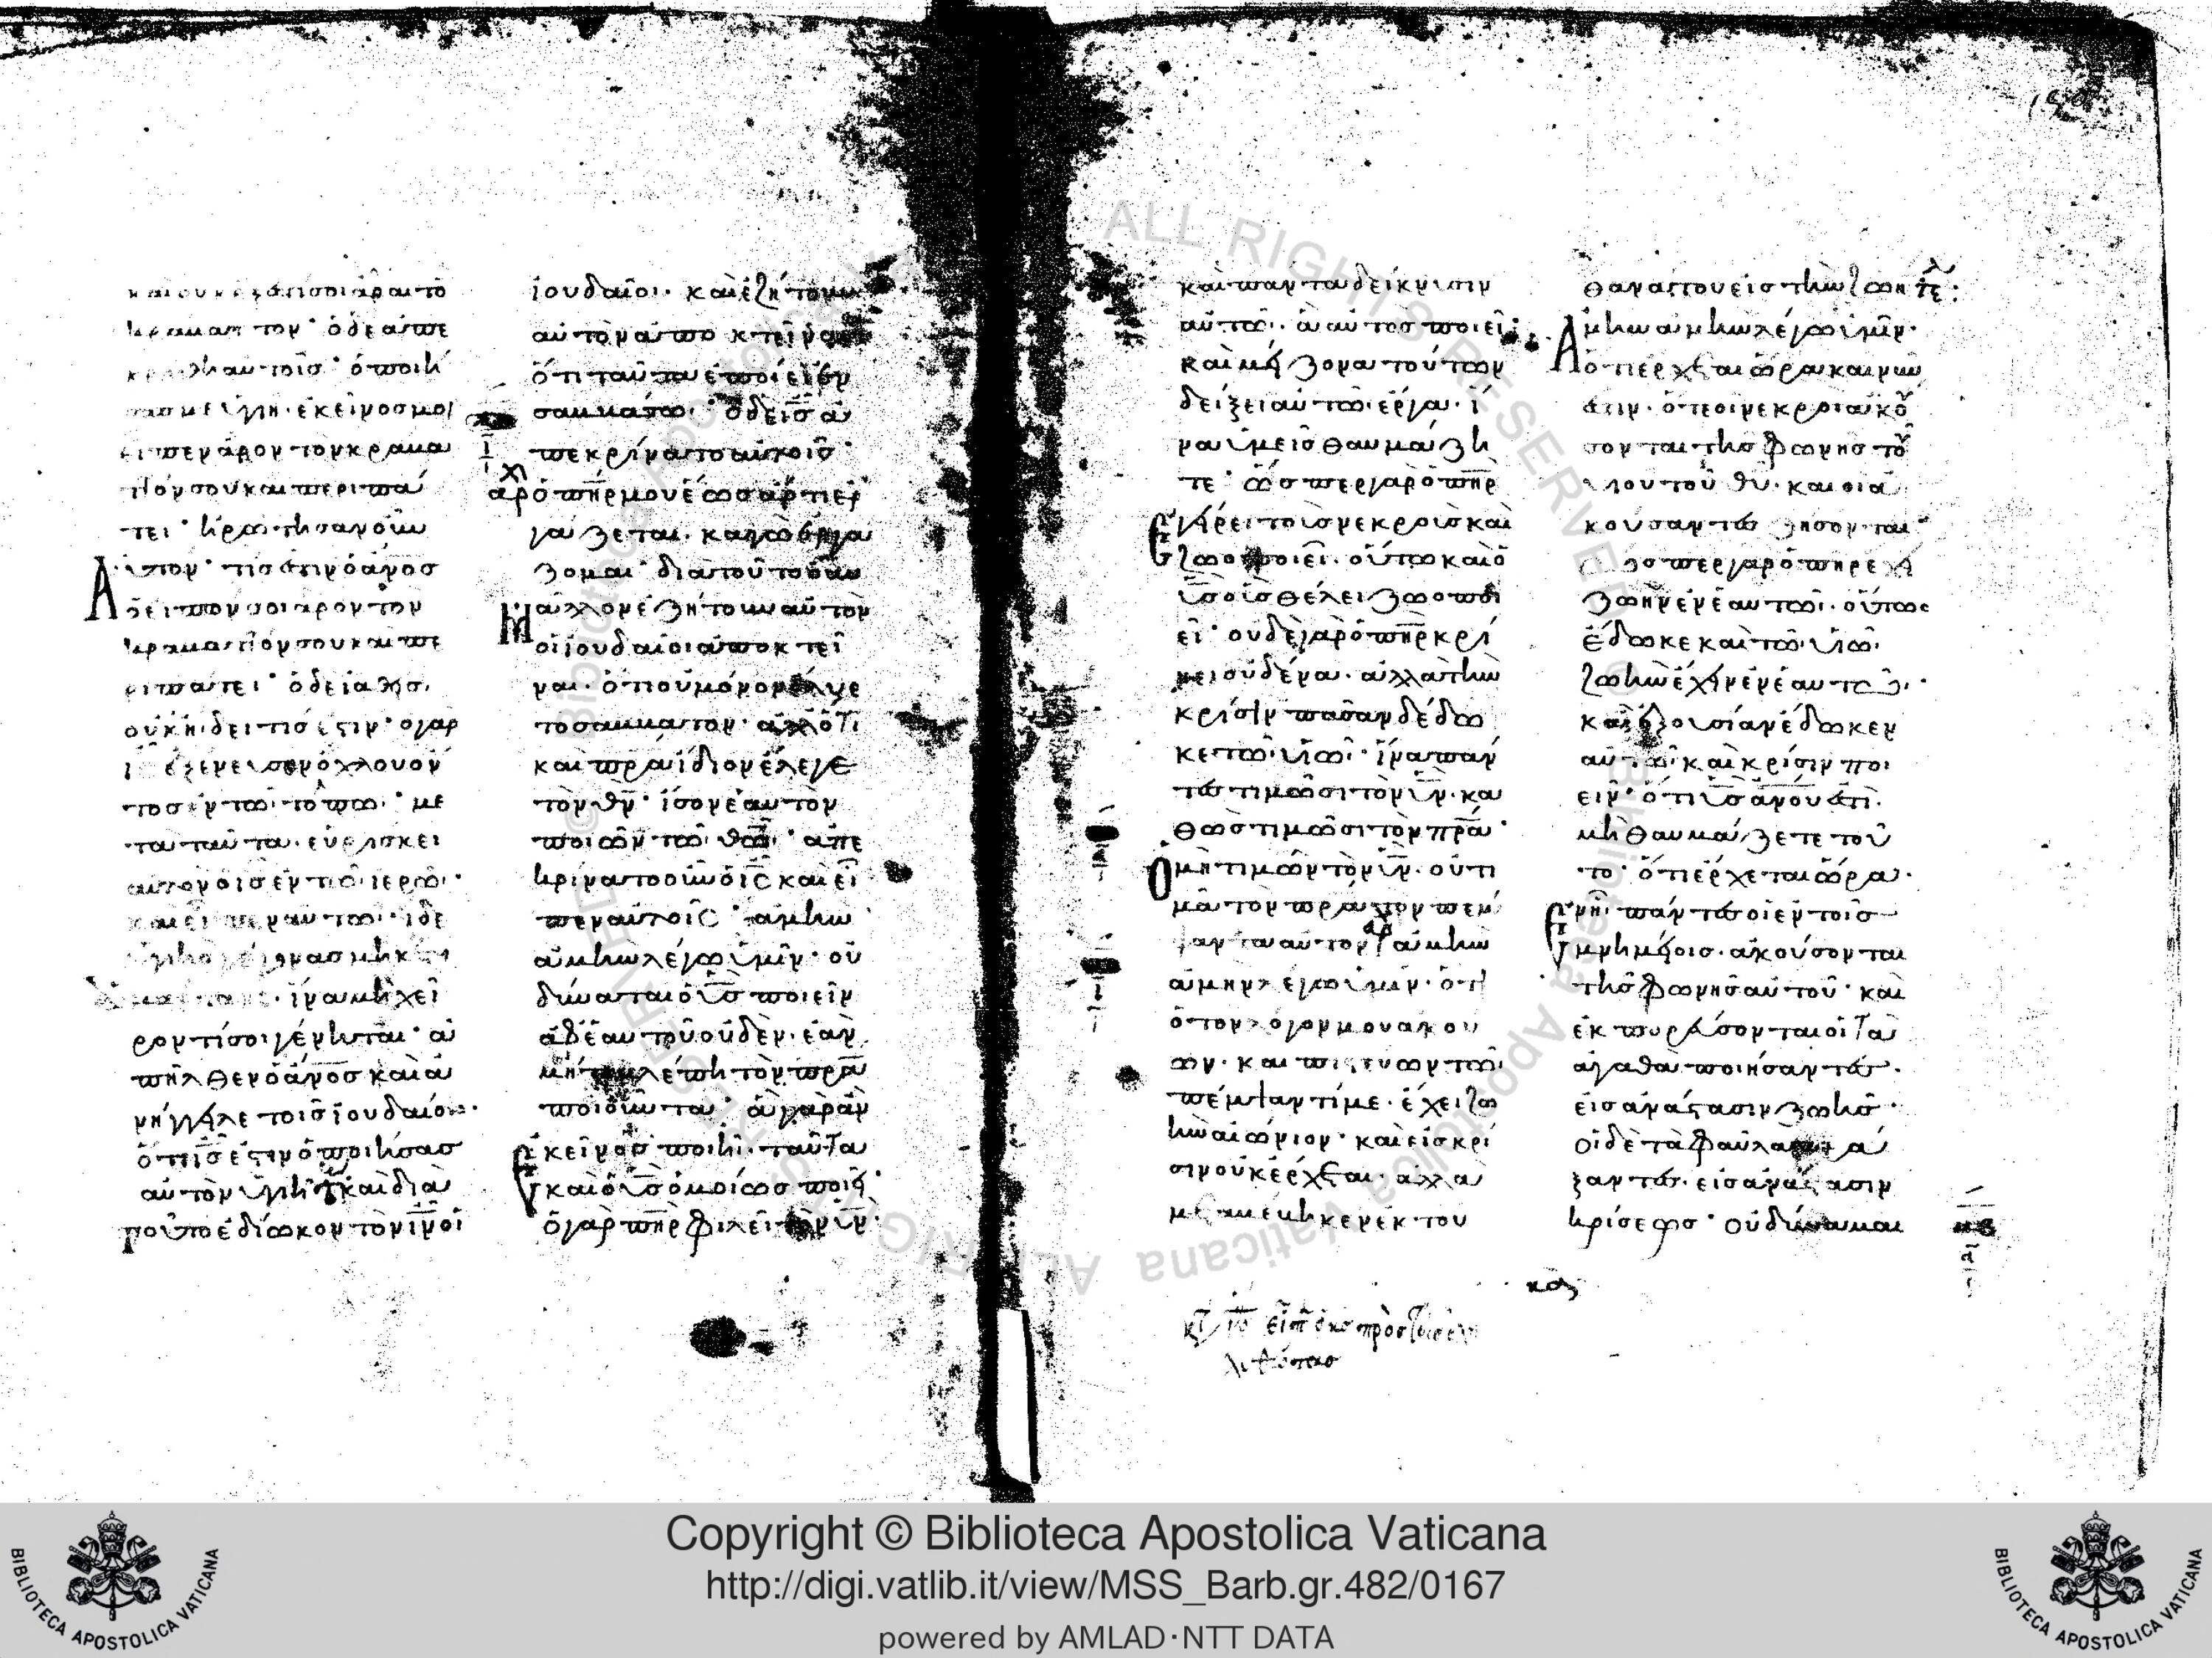 καὶ οὐκ ἔξεστί σοι ἆραι τὸ
κράβαττον· ὁ δὲ ἀπε
κρίθη αὐτοῖς· ὁ ποιή
σας με ὑγιῆ· ἐκεῖνός μοι
εἶπεν ἆρον τὸν κράβα
τόν σου καὶ περιπά
τει· ἠρώτησαν οὖν
αὐτόν· τίς ἐστιν ὁ ἄνος
ὁ εἰπών σοι ἆρον τὸν
κράβαττόν σου καὶ πε
ριπάτει· ὁ δὲ ἰαθεὶς
οὐκ ᾔδει τίς ἐστιν· ὁ γὰρ
ις ἐξένευσεν ὄχλου ὄν
τος ἐν τῶι τόπωι· με
τὰ ταῦτα εὑρίσκει
αὐτὸν ὁ ις ἐν τῶι ἱερῶι·
καὶ εἶπεν αὐτῶι· ἴδε
ὑγιὴς γέγονας μηκέτι
ἁμάρτανε· ἵνα μὴ χεῖ
ρόν τί σοι γένηται· ἀ
πῆλθεν ὁ ἄνος καὶ ἀ
νήγγειλε τοῖς ἰουδαίοις·
ὅτι ις ἐστιν ὁ ποιήσας
αὐτὸν ὑγιῆ· καὶ διὰ
τοῦτο ἐδίωκον τὸν ιν οἱ
ἰουδαῖοι· καὶ ἐζήτουν
αὐτὸν ἀποκτεῖναι
ὅτι ταῦτα ἐποίει ἐν
σαββάτω· ὁ δὲ ις ἀ
πεκρίνατο αὐτοῖς·
ὁ πηρ μου ἕως ἄρτι ἐρ
γάζεται· καγὼ ἐργά
ζομαι· διὰ τοῦτο οὖν
μᾶλλον ἐζήτουν αὐτὸν
οἱ ἰουδαῖοι ἀποκτεῖ
ναι· ὅτι οὐ μόνον ἔλυε
τὸ σάββατον· ἀλλ' ὅτι
καὶ πρα ἴδιον ἔλεγε
τὸν θν· ἴσον ἑαυτὸν
ποιῶν τῶι θῶι· ἀπε
κρίνατο οὖν ὁ ις καὶ εἶ
πεν αὐτοῖς· ἀμὴν
ἀμὴν λέγω ὑμῖν· οὐ
δύναται ὁ υς ποιεῖν
ἀφ' ἑαυτοῦ οὐδὲν· ἐὰν
μή τι βλέπη τὸν πρα
ποιοῦντα· ἃ γὰρ ἂν
ἐκεῖνος ποιῆ· ταῦτα
καὶ ὁ υς ὁμοίως ποιεῖ·
ὁ γὰρ πηρ φιλεῖ τὸν υν·
καὶ πάντα δείκνυσιν
αὐτῶι· ἃ αὐτὸς ποιεῖ·
καὶ μείζονα τούτων
δείξει αὐτῶι ἔργα· ἵ
να ὑμεῖς θαυμάζη
τε· ὥσπερ γὰρ ὁ πηρ
ἐγείρει τοὺς νεκροὺς καὶ
ζωοποιεῖ· οὕτω καὶ ὁ
υς οὓς θέλει ζωοποι
εῖ· οὐδὲ γὰρ ὁ πηρ κρί
νει οὐδένα· ἀλλὰ τὴν
κρίσιν πᾶσαν δέδω
κε τῶι υιῶι· ἵνα πάν
τες τιμῶσι τὸν υν· κα
θὼς τιμῶσι τὸν πρα·
ὁ μὴ τιμῶν τὸν υν· οὐ τι
μᾶ τὸν πρα τὸν πέμ
ψαντα αὐτόν· ἀμὴν
ἀμὴν λέγω ὑμῖν· ὅτι
ὁ τὸν λόγον μου ἀκού
ων· καὶ πιστεύων τῶι
πέμψαντί με· ἔχει ζω
ὴν αἰώνιον· καὶ εἰς κρί
σιν οὐκ ἔρχεται· ἀλλὰ
μεταβέβηκεν ἐκ τοῦ
θανάτου εἰς τὴν ζωήν τε:
ἀμὴν ἀμὴν λέγω ὑμῖν·
ὅτι ἔρχεται ὥρα καὶ νῦν
ἐστιν· ὅτε οἱ νεκροὶ ἀκού
σονται τῆς φωνῆς τοῦ
υιου τοῦ θυ· καὶ οἱ ἀ
κούσαντες ζήσονται·
ὥσπερ γὰρ ὁ πηρ ἔχει
ζωὴν ἐν ἑαυτῶι· οὕτως
ἔδωκε καὶ τῶι υιῶι
ζωὴν ἔχειν ἐν ἑαυτῶι·
καὶ ἐξουσίαν ἔδωκεν
αὐτῶι καὶ κρίσιν ποι
εῖν· ὅτι υς ἀνου ἐστί·
μὴ θαυμάζετε τοῦ
το· ὅτι ἔρχεται ὥρα·
ἐν ἧι πάντες οἱ ἐν τοῖς
μνημείοις· ἀκούσονται
τῆς φωνῆς αὐτοῦ· καὶ
ἐκπορεύσονται οἱ τὰ
ἀγαθὰ ποιήσαντες·
εἰς ἀνάστασιν ζωῆς·
οἱ δὲ τὰ φαῦλα πρά
ξαντες· εἰς ἀνάστασιν
κρίσεως· οὐ δύναμαι
ALL RIGHTS RESERVED
© Biblioteca Apostolica Vaticana
BIBLIOTECA APOSTOLICA VATICANA
Copyright © Biblioteca Apostolica Vaticana
http://digi.vatlib.it/view/MSS_Barb.gr.482/0167
powered by AMLAD·NTT DATA
BIBLIOTECA APOSTOLICA VATICANA